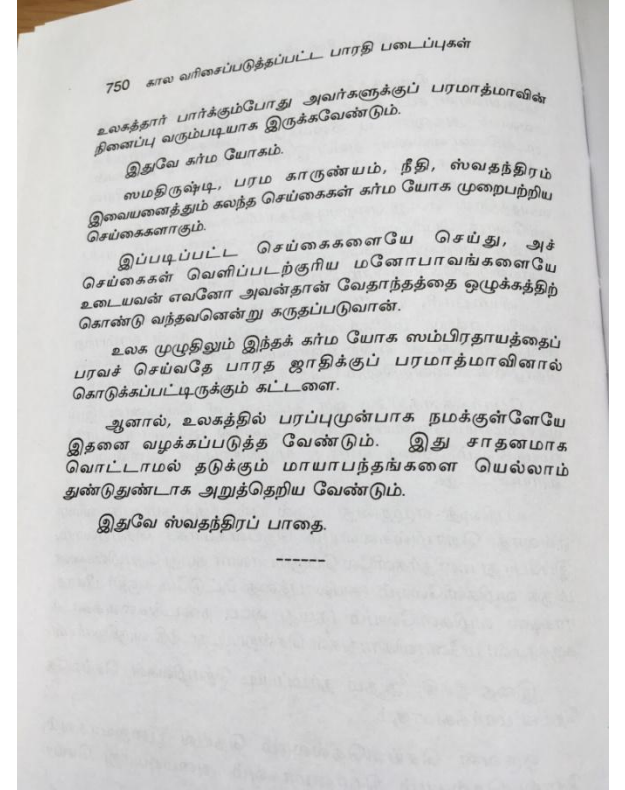 750 கால வரிசைப்படுத்தப்பட்ட பாரதி படைப்புகள்
உலகத்தார் பார்க்கும்போது அவர்களுக்குப் பரமாத்மாவின்
நினைப்பு வரும்படியாக இருக்கவேண்டும்.
இதுவே கர்ம யோகம்.
ஸமதிருஷ்டி, பரம காருண்யம், நீதி, ஸ்வதந்திரம்
இவையனைத்தும் கலந்த செய்கைகள் கர்ம யோக முறைபற்றிய
செய்கைகளாகும்.
இப்படிப்பட்ட செய்கைகளையே செய்து, அச்
செய்கைகள் வெளிப்படற்குரிய மனோபாவங்களையே
உடையவன் எவனோ அவன்தான் வேதாந்தத்தை ஒழுக்கத்திற்
கொண்டு வந்தவனென்று கருதப்படுவான்.
உலக முழுதிலும் இந்தக் கர்ம யோக ஸம்பிரதாயத்தைப்
பரவச் செய்வதே பாரத ஜாதிக்குப் பரமாத்மாவினால்
கொடுக்கப்பட்டிருக்கும் கட்டளை.
ஆனால், உலகத்தில் பரப்புமுன்பாக நமக்குள்ளேயே
இதனை வழக்கப்படுத்த வேண்டும். இது சாதனமாக
வொட்டாமல் தடுக்கும் மாயாபந்தங்களை யெல்லாம்
துண்டுதுண்டாக அறுத்தெறிய வேண்டும்.
இதுவே ஸ்வதந்திரப் பாதை.
------